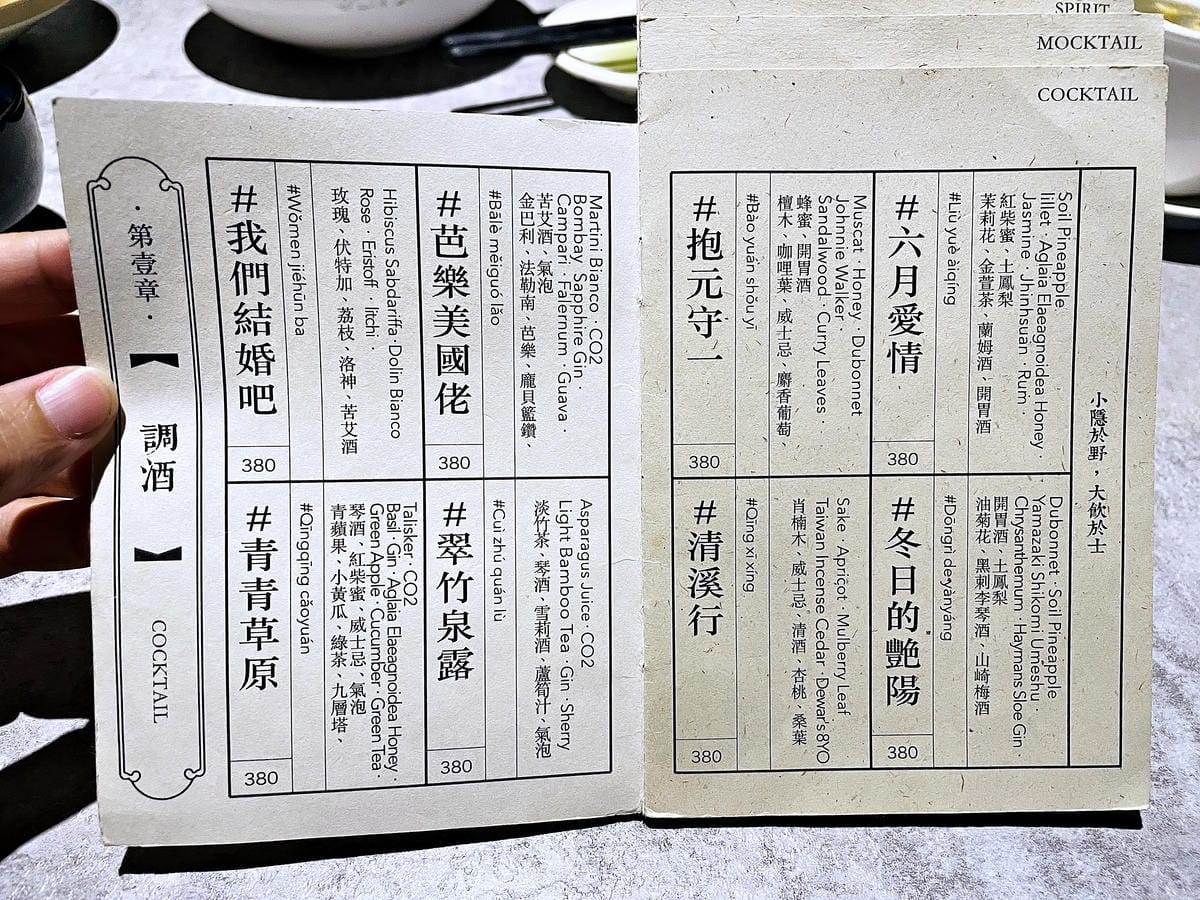 SPIRIT
MOCKTAIL
COCKTAIL
小隱於野，大飲於士
Soil Pineapple
lillet · Aglaia Elaeagnoidea Honey ·
Jasmine · Jhinhsuan · Rum ·
紅柴蜜、土鳳梨
茉莉花、金萱茶、蘭姆酒、開胃酒
#Liù yuè àiqíng
#六月愛情
380
Dubonnet · Soil Pineapple
Yamazaki Shikomi Umeshu ·
Chrysanthemum · Haymans Sloe Gin ·
開胃酒、土鳳梨
油菊花、黑刺李琴酒、山崎梅酒
#Dōngrì de yànyáng
#冬日的艷陽
380
Muscat · Honey · Dubonnet
Johnnie Walker ·
Sandalwood · Curry Leaves ·
蜂蜜、開胃酒
檀木、咖哩葉、威士忌、麝香葡萄、
#Bào yuán shǒu yī
#抱元守一
380
Sake · Apricot · Mulberry Leaf
Taiwan Incense Cedar · Dewar's 8YO
肖楠木、威士忌、清酒、杏桃、桑葉
#Qīng xī xíng
#清溪行
380
Martini Bianco · CO2
Bombay Sapphire Gin ·
Campari · Falernum · Guava ·
苦艾酒、氣泡
金巴利、法勒南、芭樂、龐貝籃鑽、
#Bālè měiguó lǎo
#芭樂美國佬
380
Asparagus Juice · CO2
Light Bamboo Tea · Gin · Sherry
淡竹茶、琴酒、雪莉酒、蘆筍汁、氣泡
#Cuì zhú quán lù
#翠竹泉露
380
Hibiscus Sabdariffa · Dolin Bianco
Rose · Eristoff · litchi ·
玫瑰、伏特加、荔枝、洛神、苦艾酒
#Wǒmen jiéhūn ba
#我們結婚吧
380
Talisker · CO2
Basil · Gin · Aglaia Elaeagnoidea Honey ·
Green Apple · Cucumber · Green Tea ·
琴酒、紅柴蜜、威士忌、氣泡
青蘋果、小黃瓜、綠茶、九層塔、
#Qīngqīng cǎoyuán
#青青草原
380
·第壹章·
【調酒】
COCKTAIL